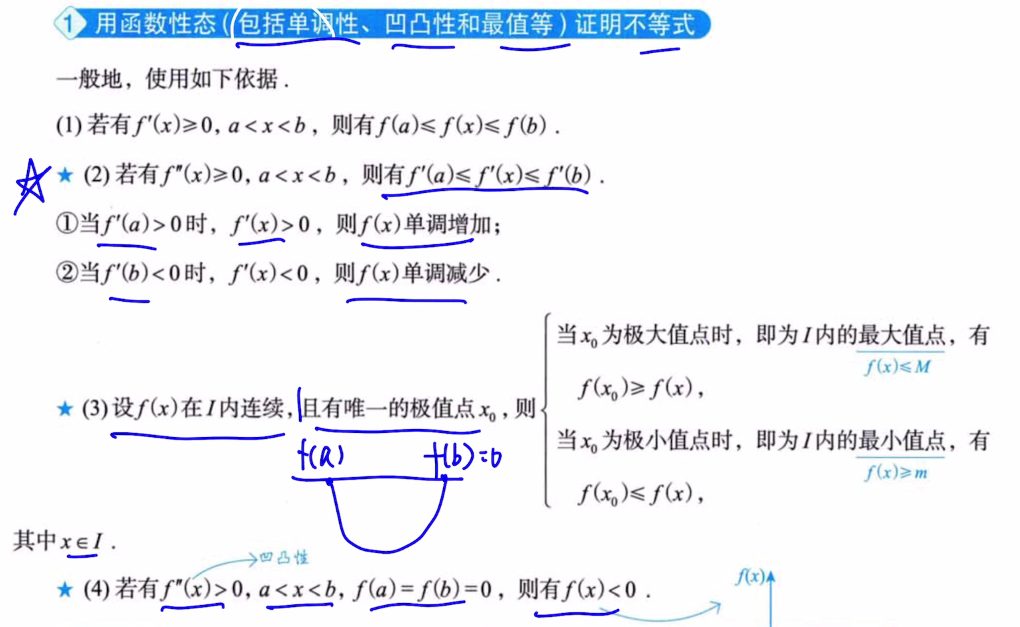 1 用函数性态(包括单调性、凹凸性和最值等)证明不等式
一般地，使用如下依据.
(1) 若有f′(x)≥0, a<x<b，则有f(a)≤f(x)≤f(b).
★ (2) 若有f″(x)≥0, a<x<b，则有f′(a)≤f′(x)≤f′(b).
①当f′(a)>0时，f′(x)>0，则f(x)单调增加;
②当f′(b)<0时，f′(x)<0，则f(x)单调减少.
★ (3) 设f(x)在I内连续, 且有唯一的极值点x₀, 则
当x₀为极大值点时，即为I内的最大值点，有
f(x)≤M
f(x₀)≥f(x),
当x₀为极小值点时，即为I内的最小值点，有
f(x)≥m
f(x₀)≤f(x),
f(a) f(b)=0
其中x∈I.
凹凸性
★ (4) 若有f″(x)>0, a<x<b, f(a)=f(b)=0，则有f(x)<0.
f(x)